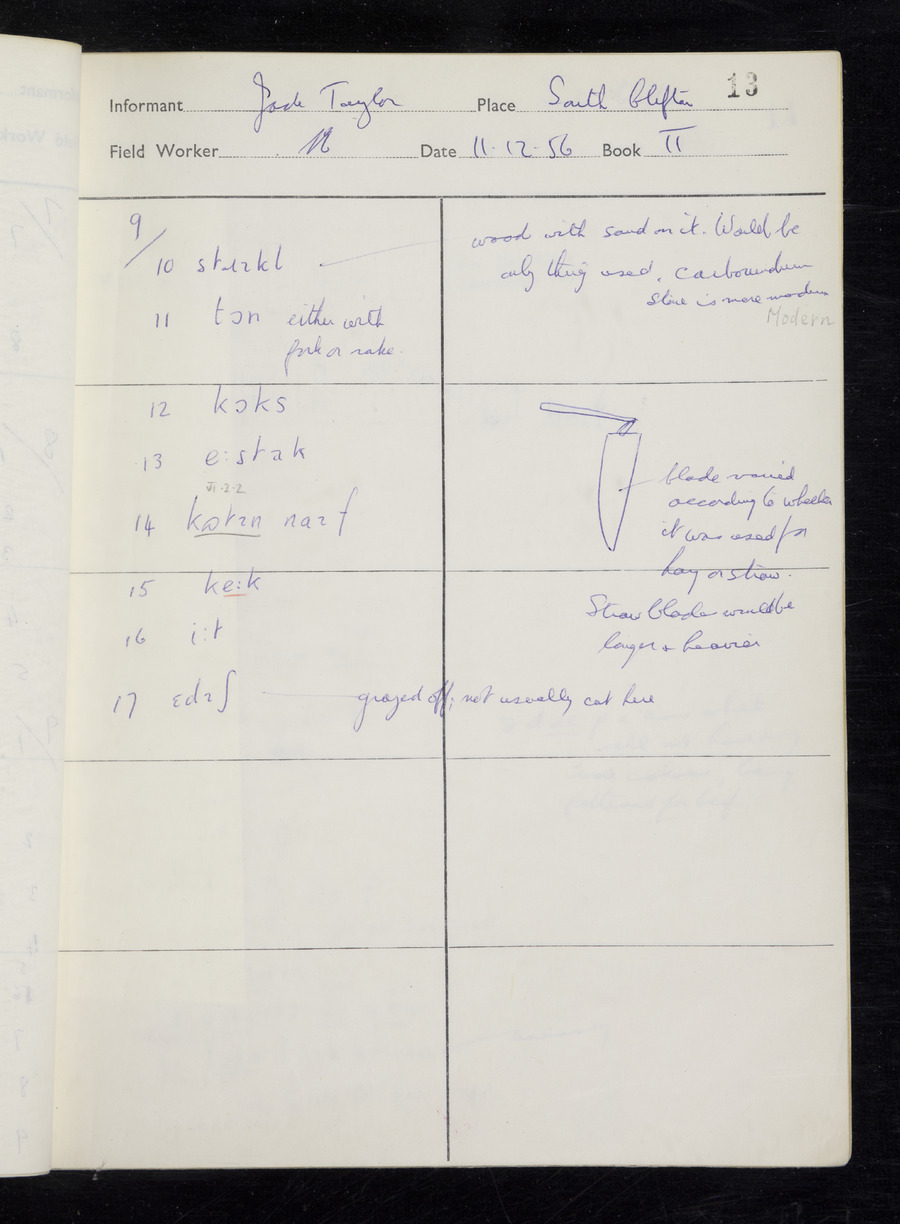 13
Informant Jack Taylor Place South Clifton
Field Worker Date 11-12-56 Book II
9/
10 stɹɪkl
wood with sand on it. Would be
only thing used. Carborundum
stone is more modern
Modern
11 tɔn either with
fork or rake.
12 kɔks
13 e:stak
VI-2-2
14
blade varied
according to whether
it was used for
hay or straw.
Straw blade would be
longer & heavier
15 ke:k
16 i:t
17 ɛdɪʃ grazed off; not usually cut here